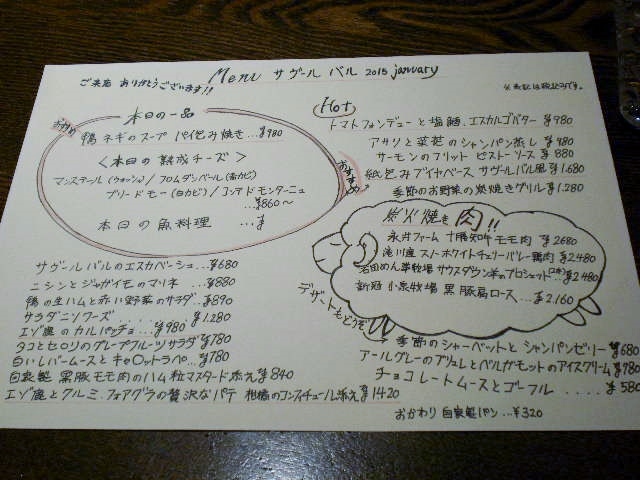 Menu サヴール バル 2015 january
ご来店 ありがとうございます!!
※表記は税込みです。
おすすめ
本日の一品
鴨ネギのスープ パイ包み焼き…¥980
＜本日の熟成チーズ＞
マンステール(ウォッシュ)/フロムダンベール(青カビ)
ブリードモー(白カビ)/コンテドモンターニュ
¥860〜
本日の魚料理 … ¥
おすすめ
サヴールバルのエスカベーシュ…¥680
ニシンとジャガイモのマリネ …¥880
鴨の生ハムと赤い野菜のサラダ…¥890
サラダニソワーズ……¥1.280
エゾ鹿のカルパッチョ …¥980
タコとセロリのグレープフルーツサラダ ¥780
白いレバームースとキャロットラペ…¥780
自家製 黒豚モモ肉のハム 粒マスタード添え ¥840
エゾ鹿とクルミ、フォアグラの贅沢なパテ 柑橘のコンフィチュール添え ¥1420
Hot
トマトフォンデューと塩鱈、エスカルゴバター ¥980
アサリと菜花のシャンパン蒸し ¥980
サーモンのフリット ピストーソース ¥880
紙包みブイヤベース サヴールバル風 ¥1.680
季節のお野菜の炭焼きグリル ¥1.280
炭火焼き 肉!!
永井ファーム 十勝和牛 モモ肉 ¥2680
滝川産 スノーホワイトチェリバレー鴨肉 ¥2480
石田めん羊牧場 サウスダウン ブロシェット ¥2480
新冠 小泉牧場 黒豚肩ロース…¥2.160
デザートもどうぞ
季節のシャーベットと シャンパンゼリー ¥680
アールグレーのブリュレとベルガモットのアイスクリーム ¥780
チョコレートムースとゴーフル …. ¥580
おかわり 自家製パン …¥320